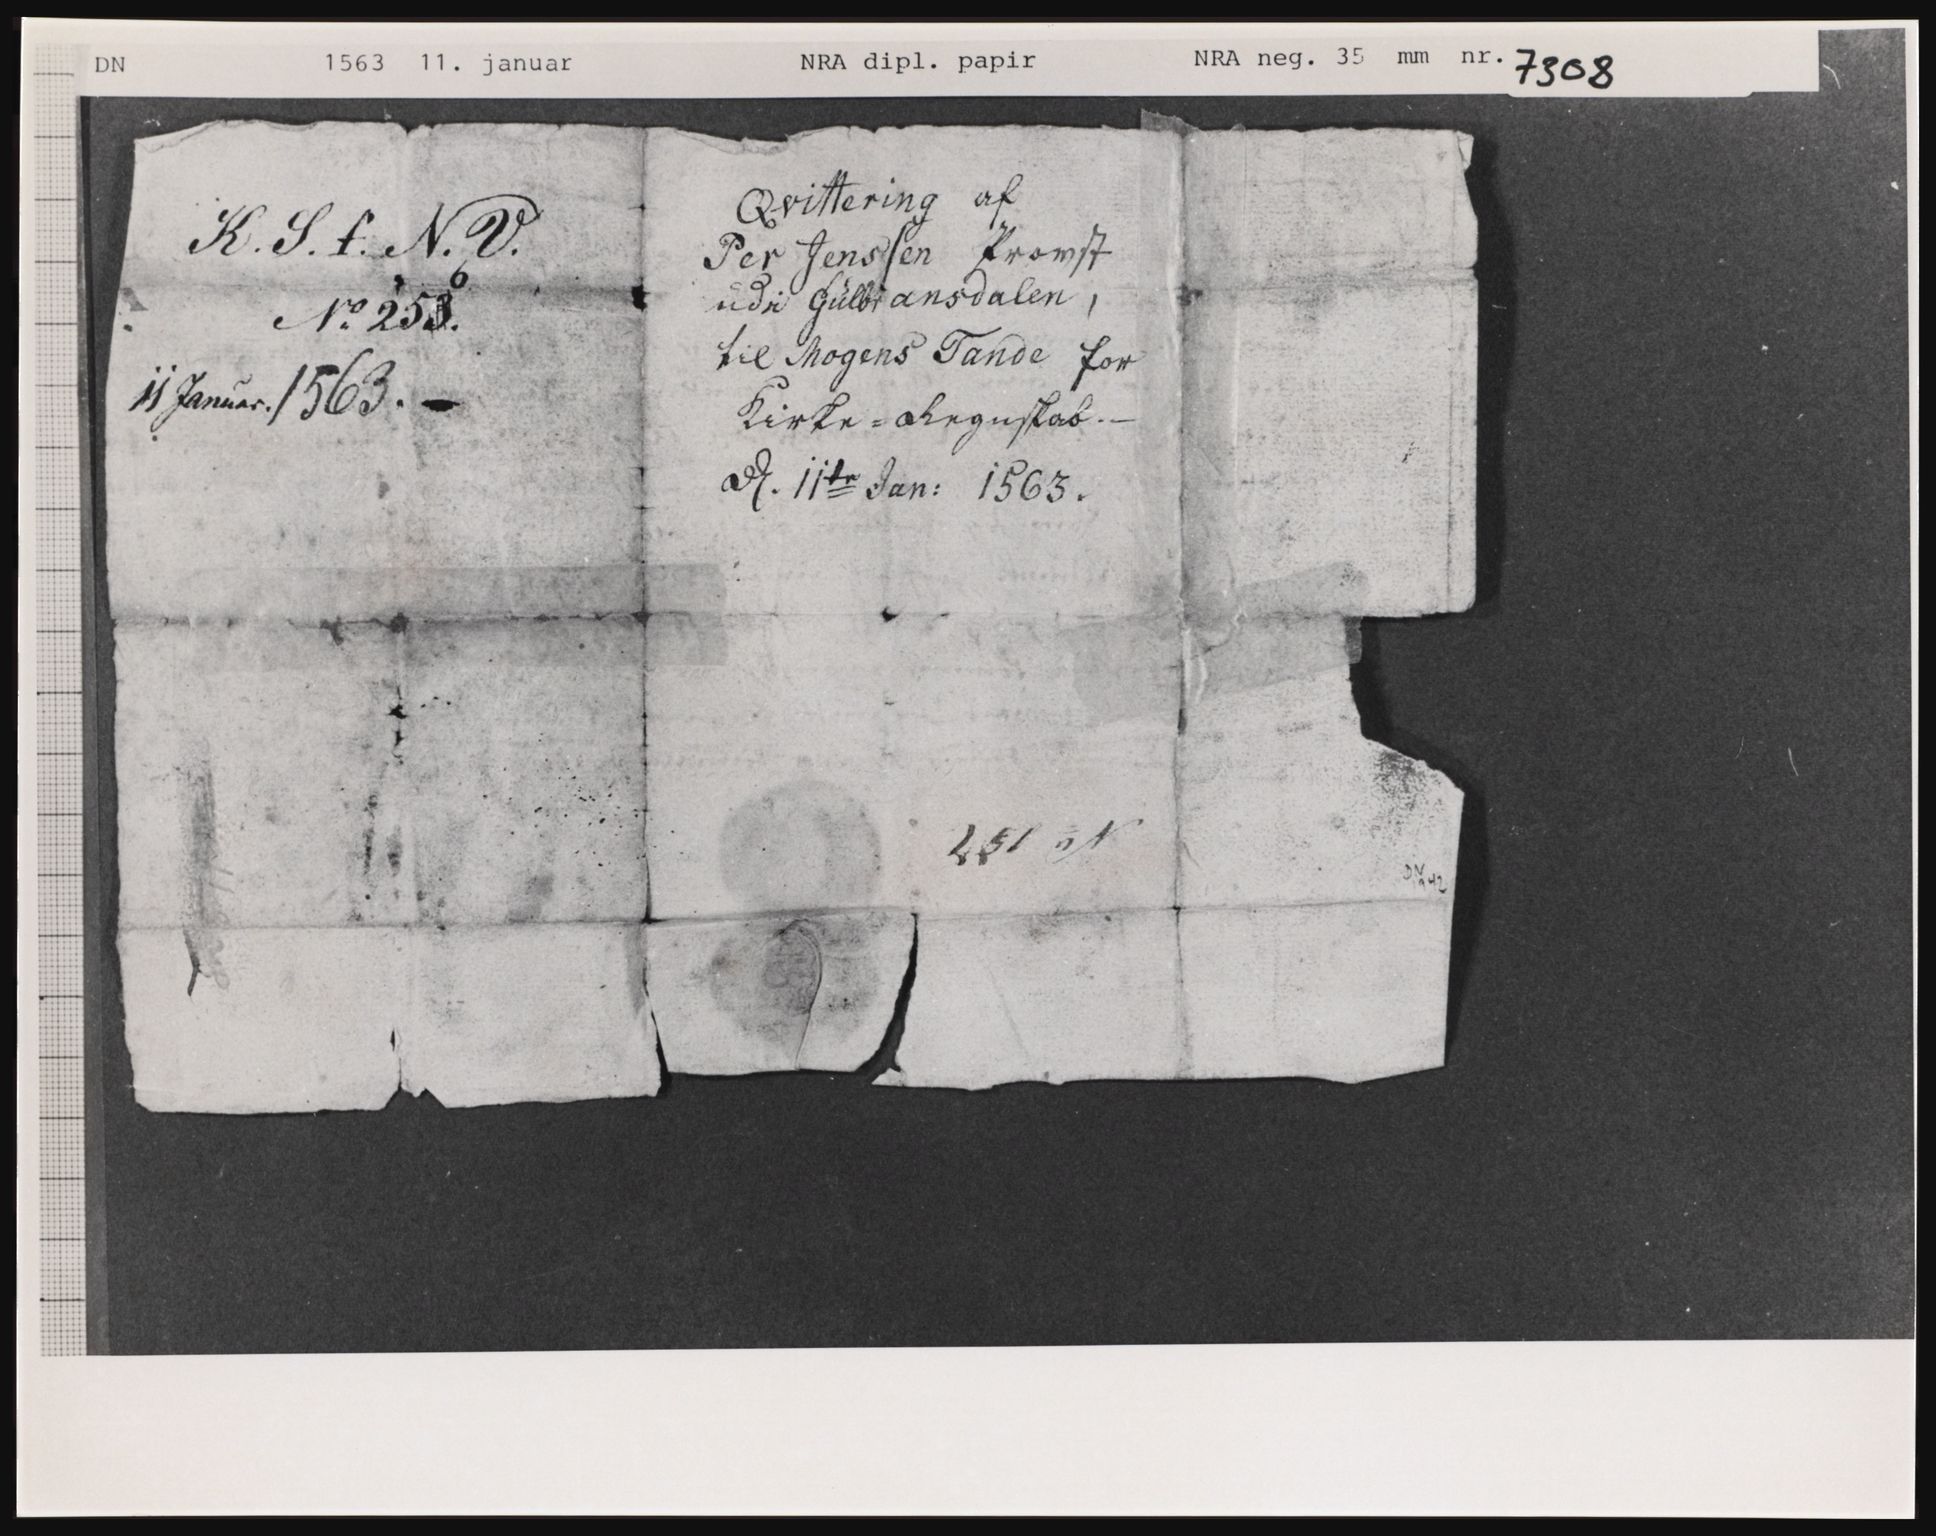 DN 1563 11. januar NRA dipl. papir NRA neg. 35 mm nr. 7308
K. S. f. N. V.
6
No 253.
11 Januar. 1563. —
Qvittering af
Per Jenssen Prowst
udi Gulbransdalen,
til Mogens Tande for
Kirke=Regnskab.—
D. 11te Jan: 1563.
DN
1942